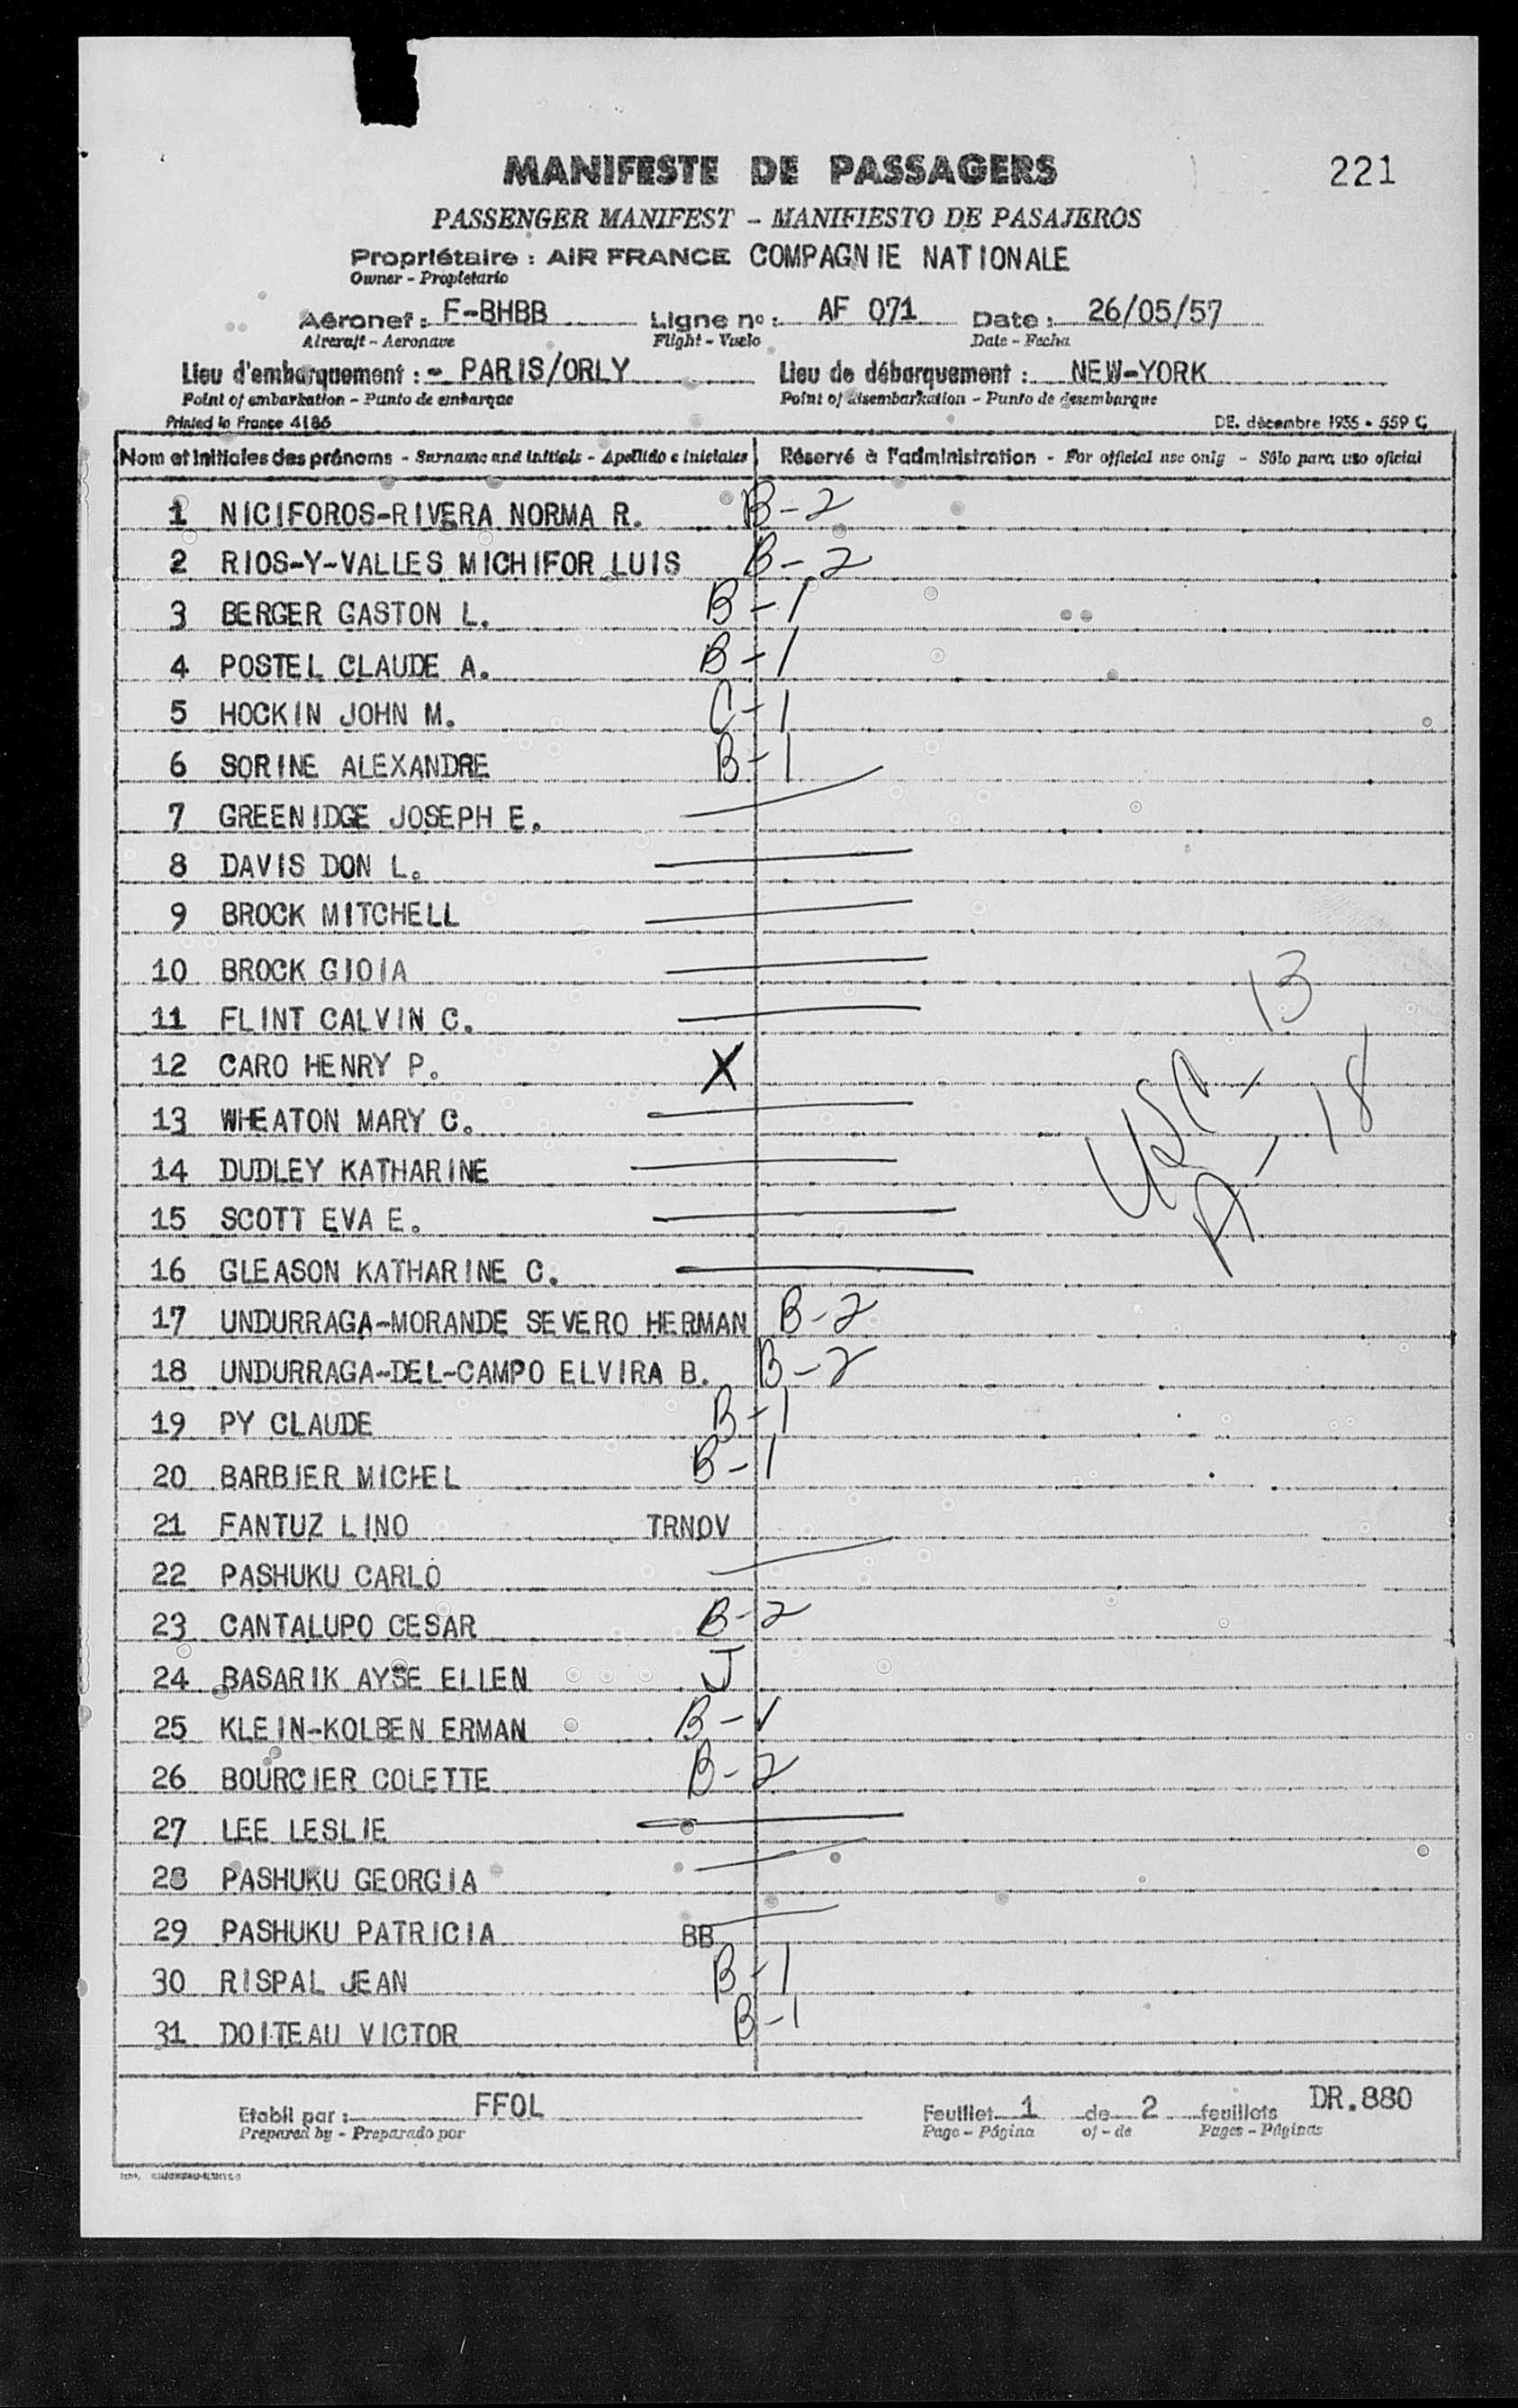 221
MANIFESTE DE PASSAGERS
PASSENGER MANIFEST - MANIFIESTO DE PASAJEROS
Propriétaire : AIR FRANCE COMPAGNIE NATIONALE
Owner - Propietario
Aéronef : F-BHBB Ligne nº : AF 071 Date : 26/05/57
Aircraft - Aeronave Flight - Vuelo Date - Fecha
Lieu d'embarquement : - PARIS/ORLY Lieu de débarquement : NEW-YORK
Point of embarkation - Punto de embarque Point of disembarkation - Punto de desembarque
Printed in France 4186 DE. décembre 1955 - 559 C
Nom et initiales des prénoms - Surname and initials - Apellido e iniciales Réservé à l'administration - For official use only - Sólo para uso oficial
1 NICIFOROS-RIVERA NORMA R. B-2
2 RIOS-Y-VALLES MICHIFOR LUIS B-2
3 BERGER GASTON L. B-1
4 POSTEL CLAUDE A. B-1
5 HOCKIN JOHN M. C-1
6 SORINE ALEXANDRE B-1
7 GREENIDGE JOSEPH E.
8 DAVIS DON L.
9 BROCK MITCHELL
10 BROCK GIOIA
11 FLINT CALVIN C.
12 CARO HENRY P. X
13 WHEATON MARY C.
14 DUDLEY KATHARINE
15 SCOTT EVA E.
16 GLEASON KATHARINE C.
USC - 13
A - 18
17 UNDURRAGA-MORANDE SEVERO HERMAN B-2
18 UNDURRAGA-DEL-CAMPO ELVIRA B. B-2
19 PY CLAUDE B-1
20 BARBIER MICHEL B-1
21 FANTUZ LINO TRNOV
22 PASHUKU CARLO
23 CANTALUPO CESAR B-2
24 BASARIK AYSE ELLEN J
25 KLEIN-KOLBEN ERMAN B-1
26 BOURCIER COLETTE B-2
27 LEE LESLIE
28 PASHUKU GEORGIA
29 PASHUKU PATRICIA BB
30 RISPAL JEAN B-1
31 DOITEAU VICTOR B-1
Etabli par : FFOL Feuillet 1 de 2 feuillets DR.880
Prepared by - Preparado por Page - Página of - de Pages - Páginas